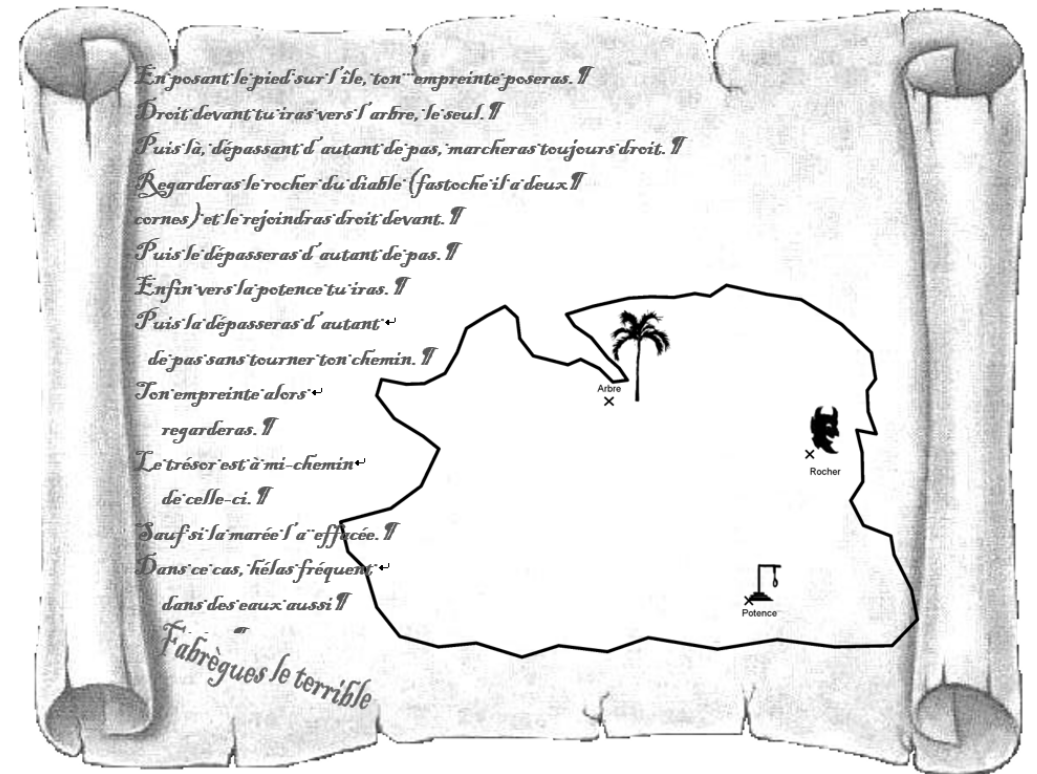 En posant le pied sur l'île, ton empreinte poseras. ¶
Droit devant tu iras vers l'arbre, le seul. ¶
Puis là, dépassant d'autant de pas, marcheras toujours droit. ¶
Regarderas le rocher du diable (fastoche il a deux ¶
cornes) et le rejoindras droit devant. ¶
Puis le dépasseras d'autant de pas. ¶
Enfin vers la potence tu iras. ¶
Puis la dépasseras d'autant ↵
de pas sans tourner ton chemin. ¶
Ton empreinte alors ↵
regarderas. ¶
Le trésor est à mi-chemin ↵
de celle-ci. ¶
Sauf si la marée l'a effacée. ¶
Dans ce cas, hélas fréquent, ↵
dans des eaux aussi ¶
Fabrègues le terrible
Arbre
Rocher
Potence